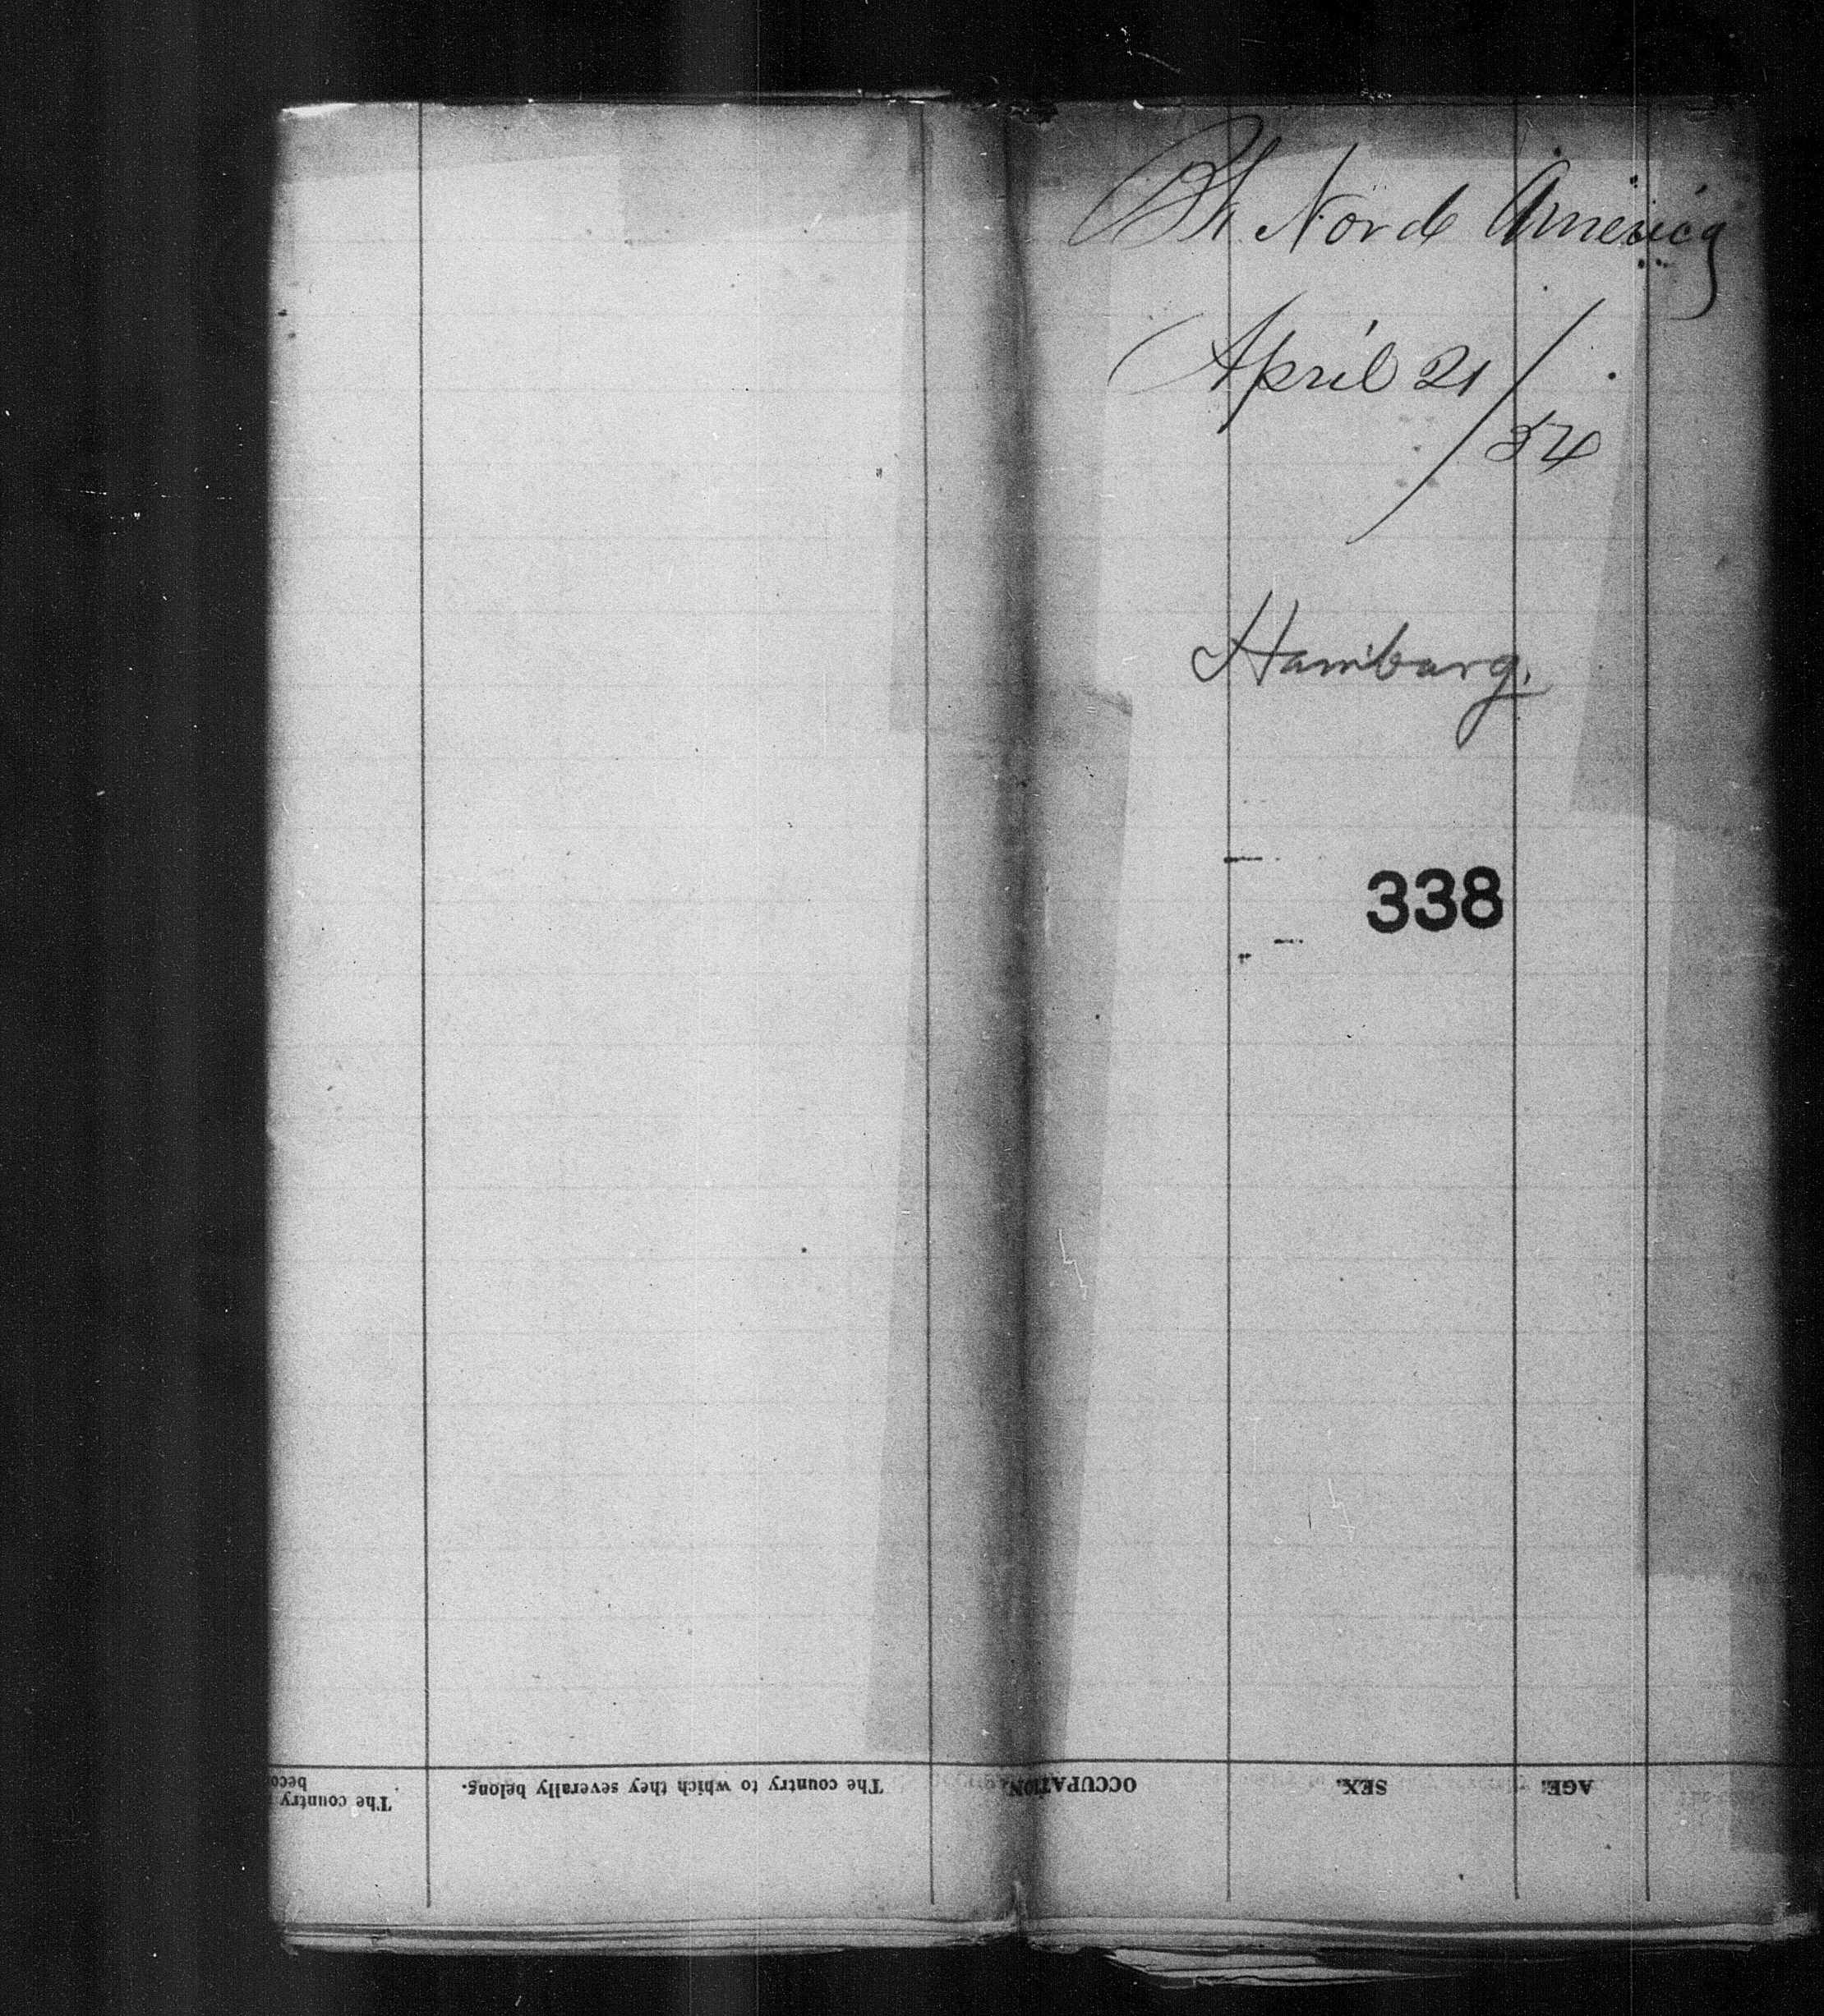 Bk Nord America
April 21/54
Hamburg.
338
The country
beco
The country to which they severally belong.
OCCUPATION.
SEX.
AGE.